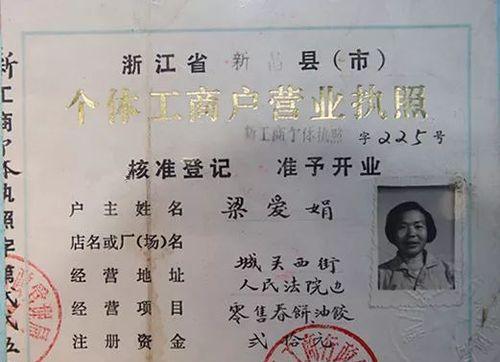 浙江省 新昌县(市)
个体工商户营业执照
新工商个体执照 字225号
核准登记 准予开业
户主姓名 梁爱娟
店名或厂(场)名
经营地址 城关西街
人民法院边
经营项目 零售春餅油餃
注册资金 贰拾元
新工商个体执照字第贰贰五